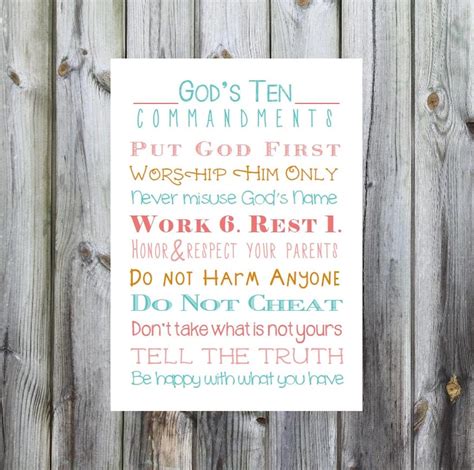 GOD'S TEN
COMMANDMENTS
PUT GOD FIRST
WORSHIP HIM ONLY
Never misuse God's Name
WORK 6. REST 1.
HONOR & RESPECT YOUR PARENTS
DO NOT HARM ANYONE
DO NOT CHEAT
Don't take what is not yours
TELL THE TRUTH
Be happy with what you have